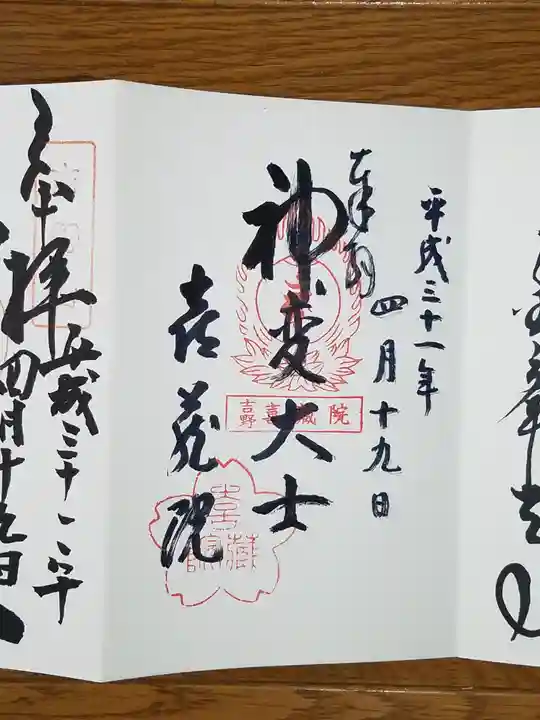 平成三十一年
四月十九日
奉拝
神変大士
喜蔵院
吉野 喜蔵院
喜蔵院
奉拝
平成三十一年
四月十九日